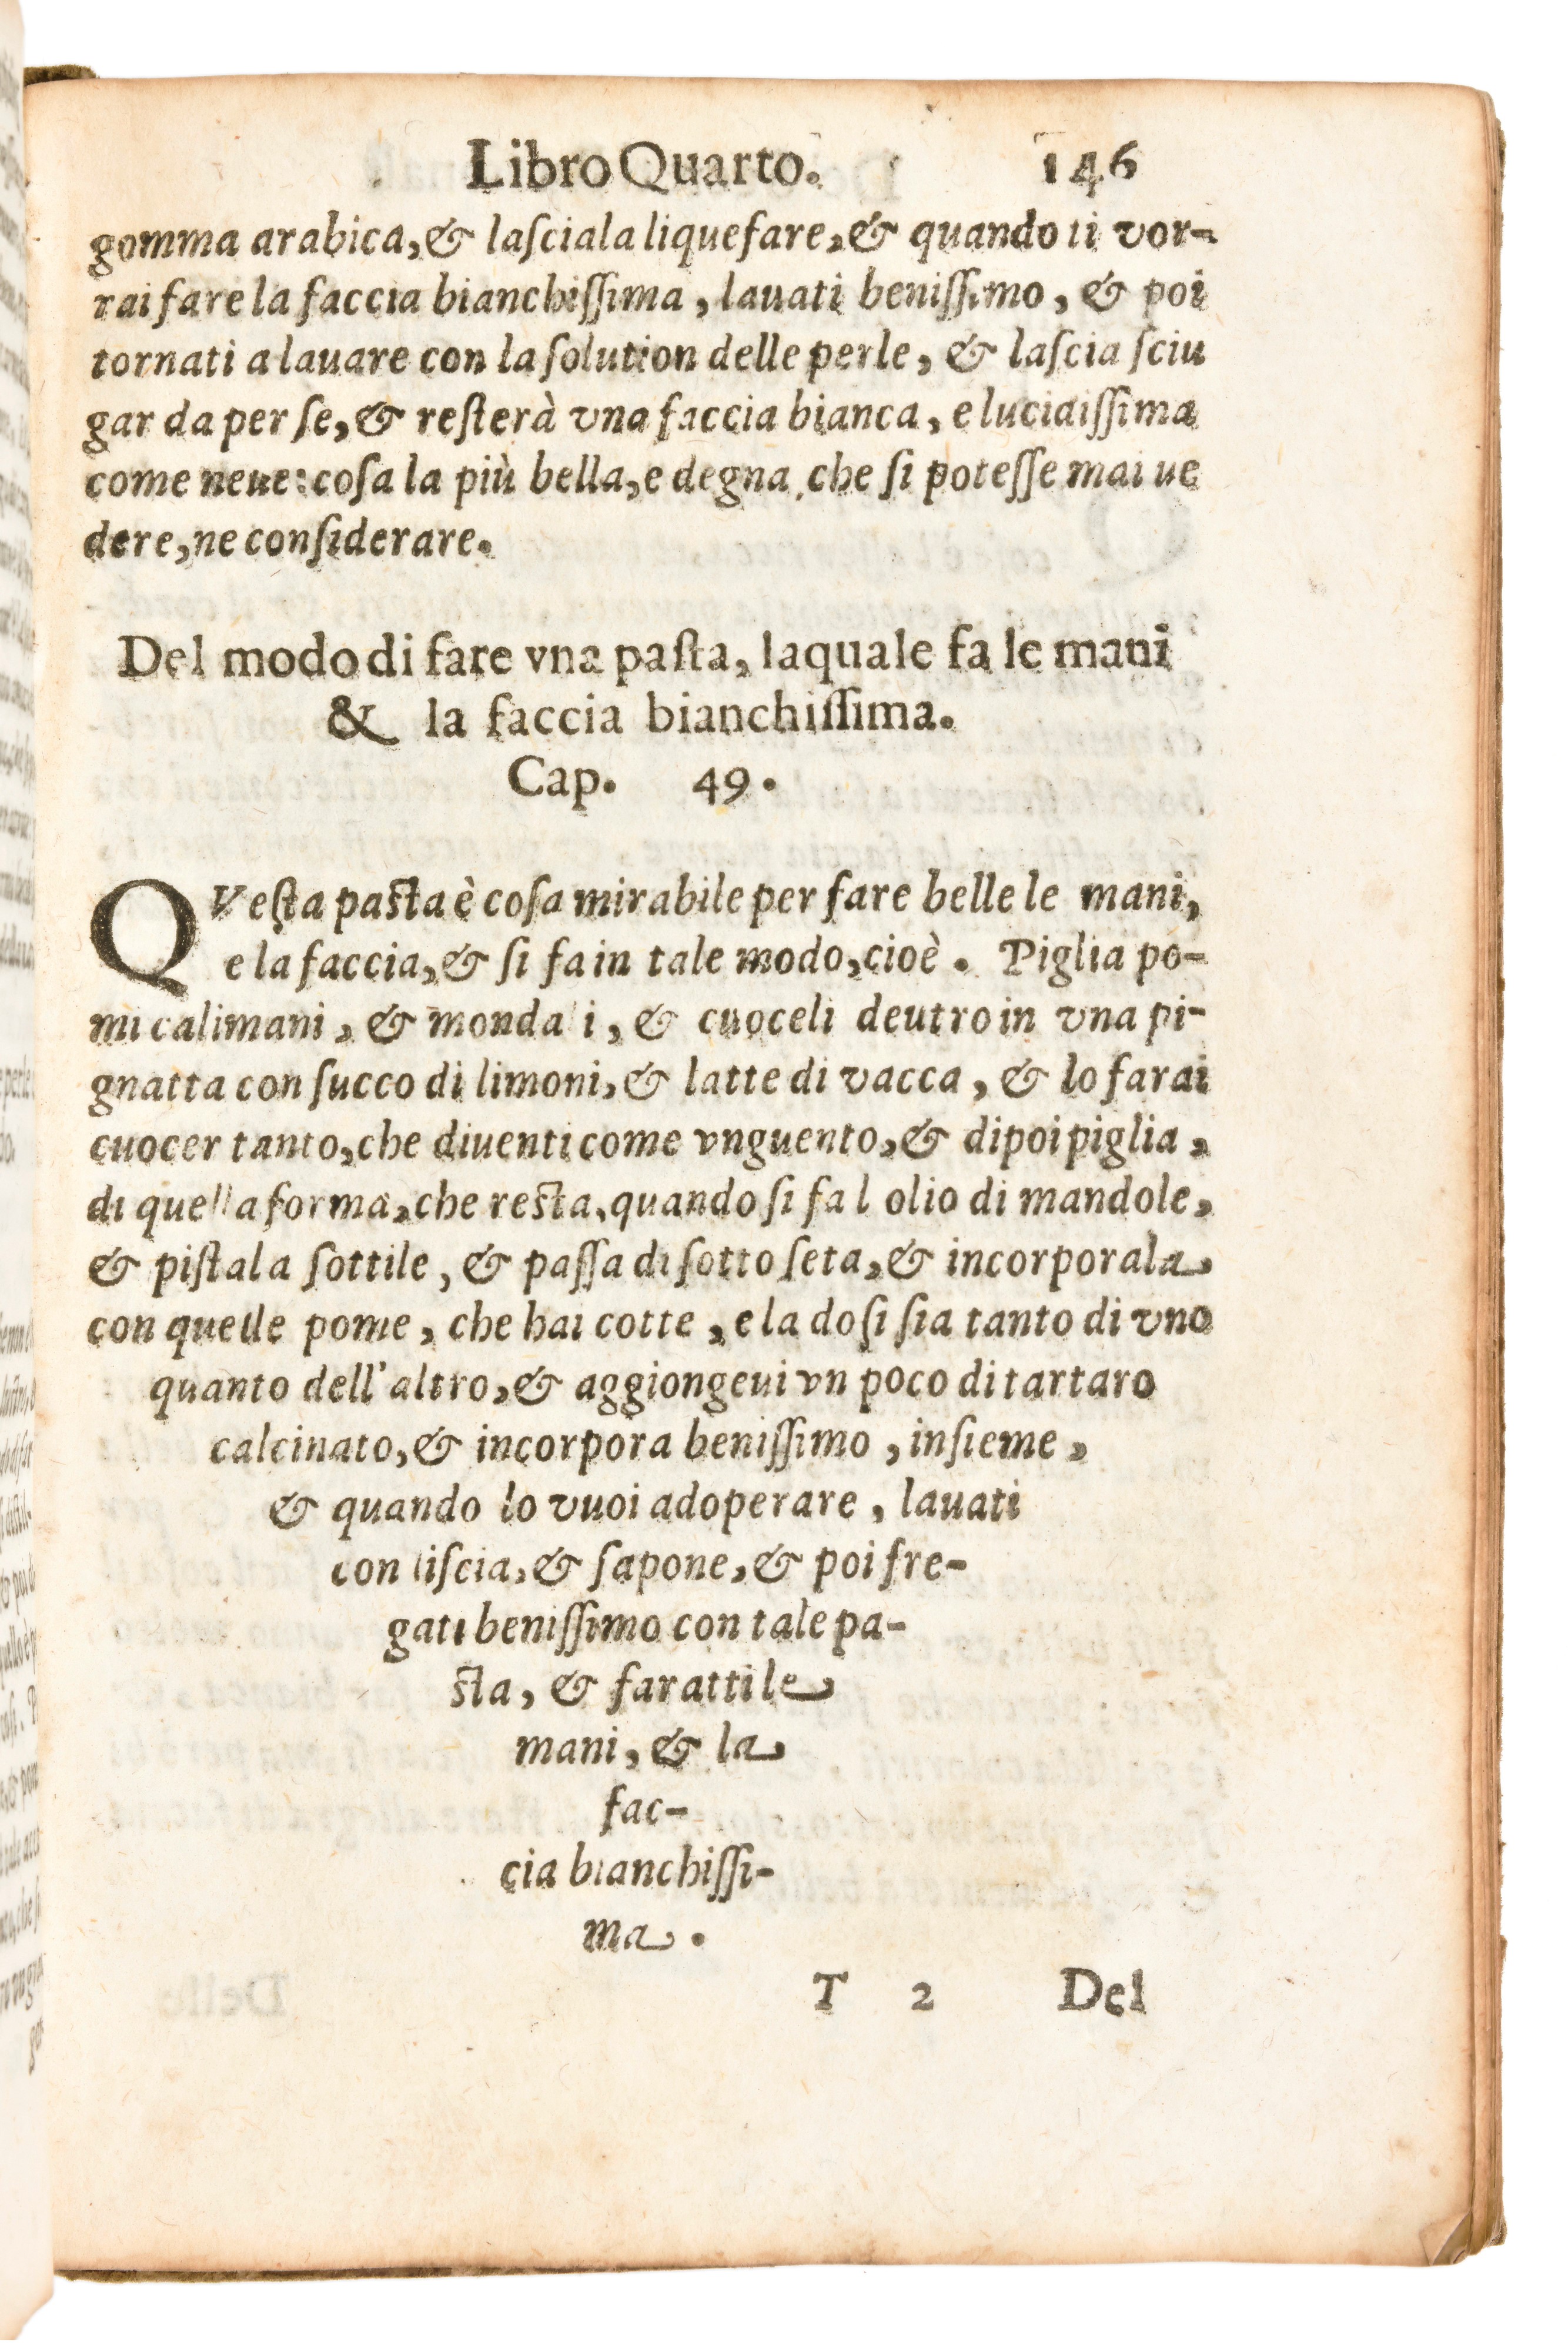 Libro Quarto. 146
gomma arabica, & laſciala liquefare, & quando ti vor-
rai fare la faccia bianchiſſima, lauati beniſſimo, & poi
tornati a lauare con la ſolution delle perle, & laſcia ſciu
gar da per ſe, & reſterà vna faccia bianca, e lucidiſſima
come neue: coſa la più bella, e degna, che ſi poteſſe mai ue
dere, ne conſiderare.
Del modo di fare vna paſta, laquale fa le mani
& la faccia bianchiſſima.
Cap. 49.
QVeſta paſta è coſa mirabile per fare belle le mani,
e la faccia, & ſi fa in tale modo, cioè. Piglia po-
mi calimani, & mondali, & cuoceli deutro in vna pi-
gnatta con ſucco di limoni, & latte di vacca, & lo farai
cuocer tanto, che diuenti come vnguento, & dipoi piglia,
di quella forma, che reſta, quando ſi fa l olio di mandole,
& piſtala ſottile, & paſſa di ſotto ſeta, & incorporala
con quelle pome, che hai cotte, e la doſi ſia tanto di vno
quanto dell'altro, & aggiongeui vn poco di tartaro
calcinato, & incorpora beniſſimo, inſieme,
& quando lo vuoi adoperare, lauati
con liſcia, & ſapone, & poi fre-
gati beniſſimo con tale pa-
ſta, & faratti le
mani, & la
fac-
cia bianchiſſi-
ma.
T 2 Del